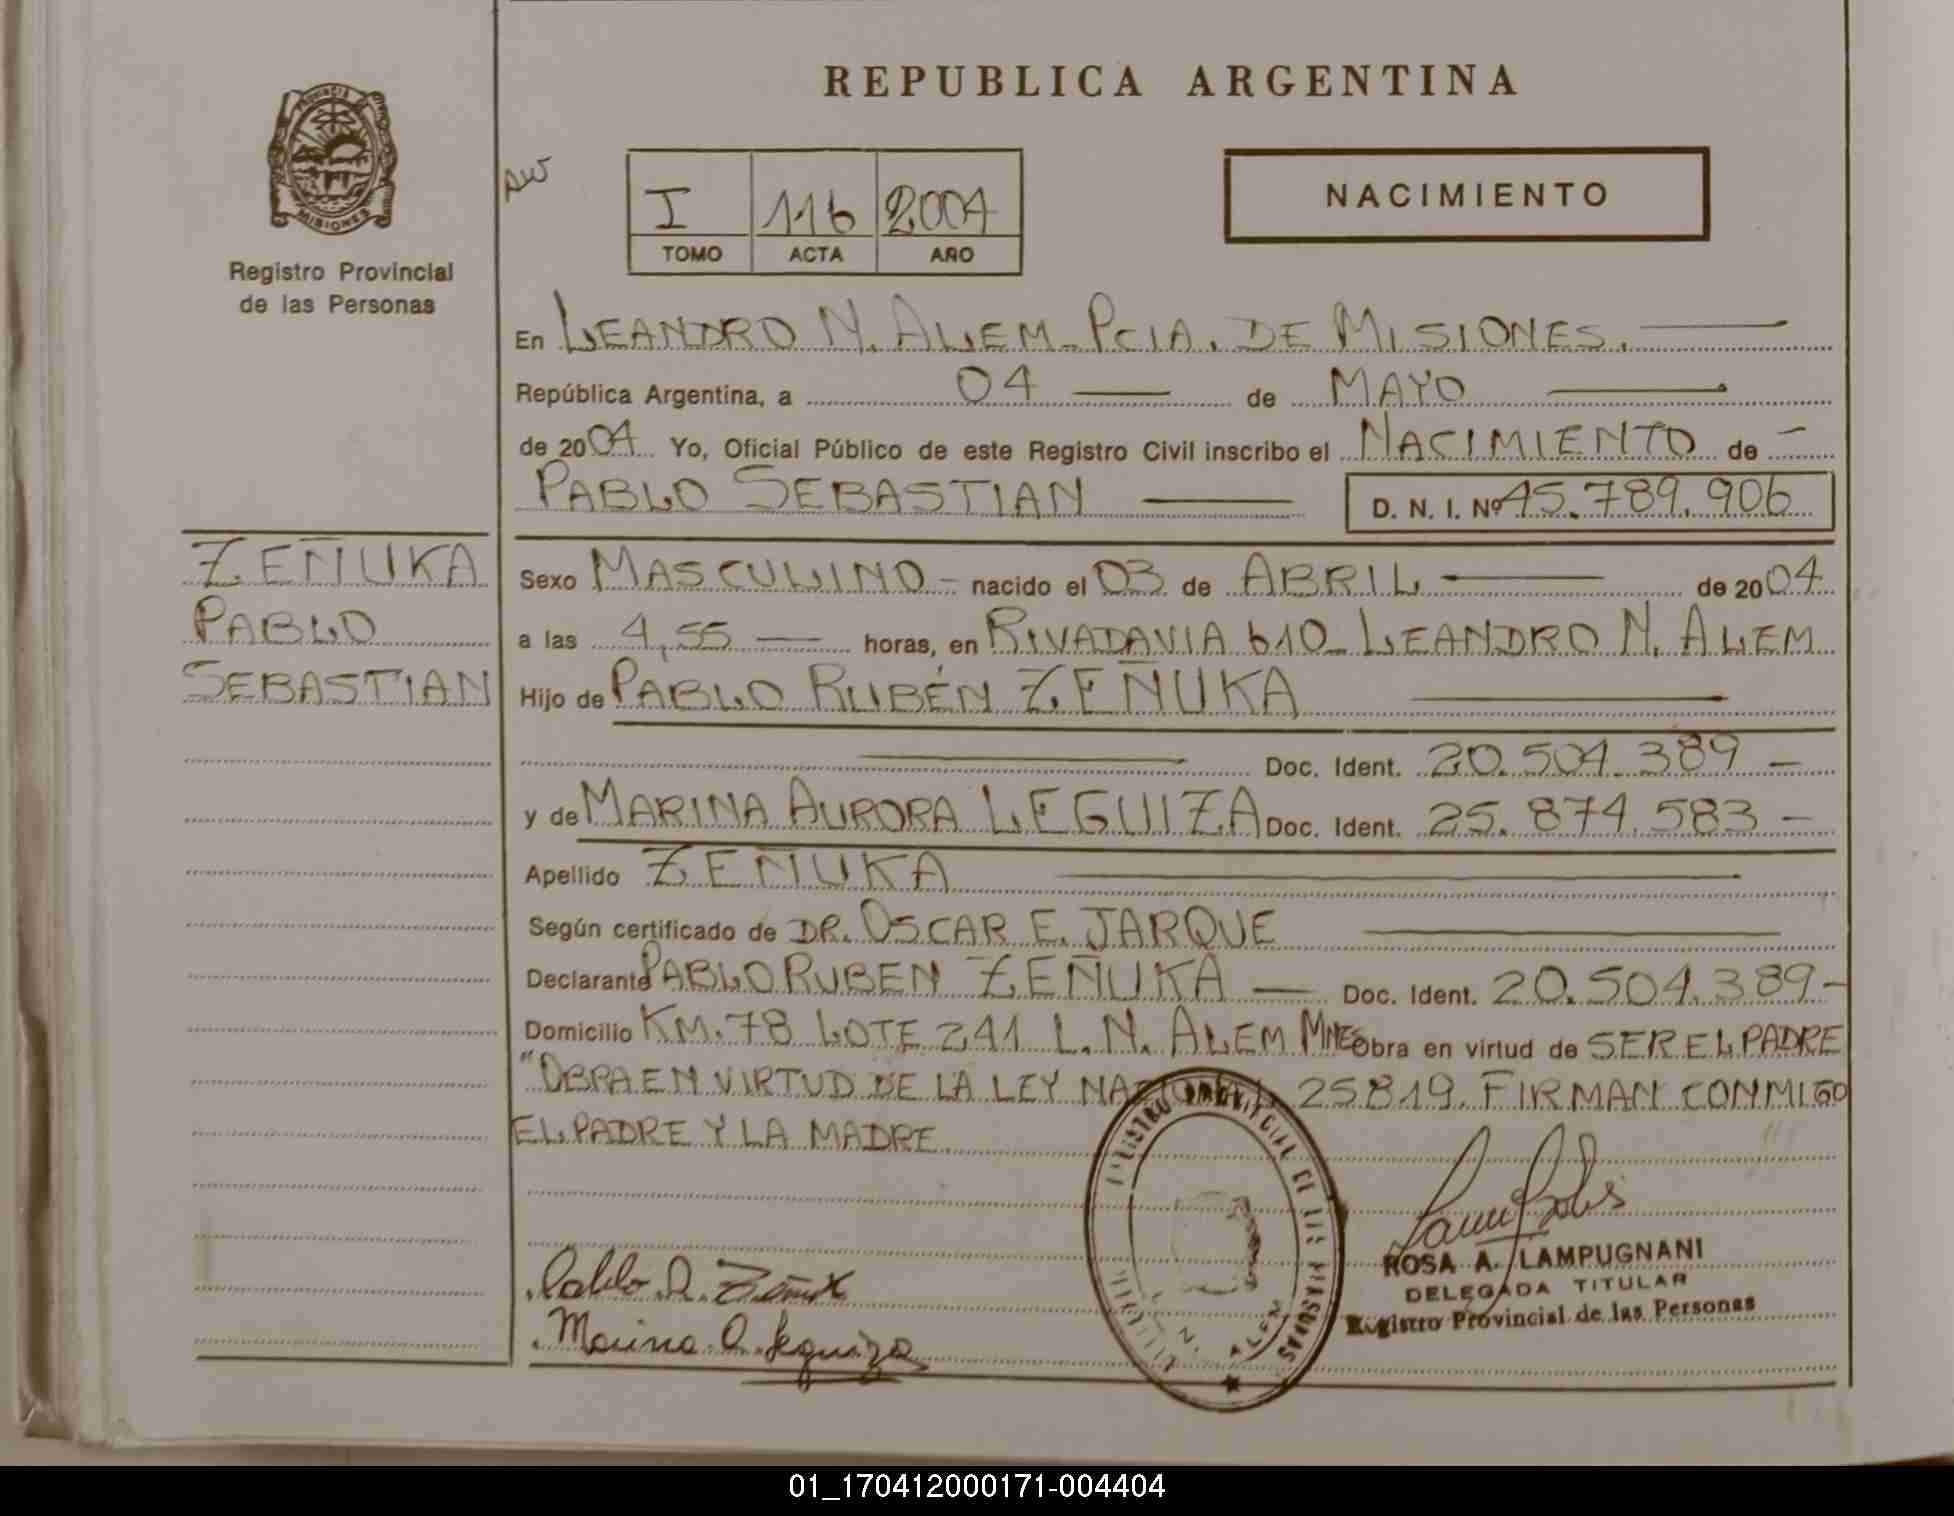 REPUBLICA ARGENTINA
PROVINCIA
MISIONES
Registro Provincial
de las Personas
I 116 2004
TOMO ACTA AÑO
NACIMIENTO
En LEANDRO N. ALEM - PCIA. DE MISIONES.
República Argentina, a 04 de MAYO
de 2004 Yo, Oficial Público de este Registro Civil inscribo el NACIMIENTO de
PABLO SEBASTIAN D. N. I. Nº 45.789.906
ZEÑUKA
PABLO
SEBASTIAN
Sexo MASCULINO - nacido el 03 de ABRIL de 2004
a las 4,55 horas, en RIVADAVIA 610 - LEANDRO N. ALEM
Hijo de PABLO RUBÉN ZEÑUKA
Doc. Ident. 20.504.389 -
y de MARINA AURORA LEGUIZA Doc. Ident. 25.874.583 -
Apellido ZEÑUKA
Según certificado de DR. OSCAR E. JARQUE
Declarante PABLO RUBEN ZEÑUKA - Doc. Ident. 20.504.389 -
Domicilio KM. 78 LOTE 241 L. N. ALEM MNES Obra en virtud de SER EL PADRE
"OBRA EN VIRTUD DE LA LEY NACIONAL 25819. FIRMAN CONMIGO
EL PADRE Y LA MADRE
REGISTRO PROVINCIAL DE LAS PERSONAS
N. ALEM
Pablo R. Zeñuk
Marina A. Leguiza
ROSA A. LAMPUGNANI
DELEGADA TITULAR
Registro Provincial de las Personas
01_170412000171-004404